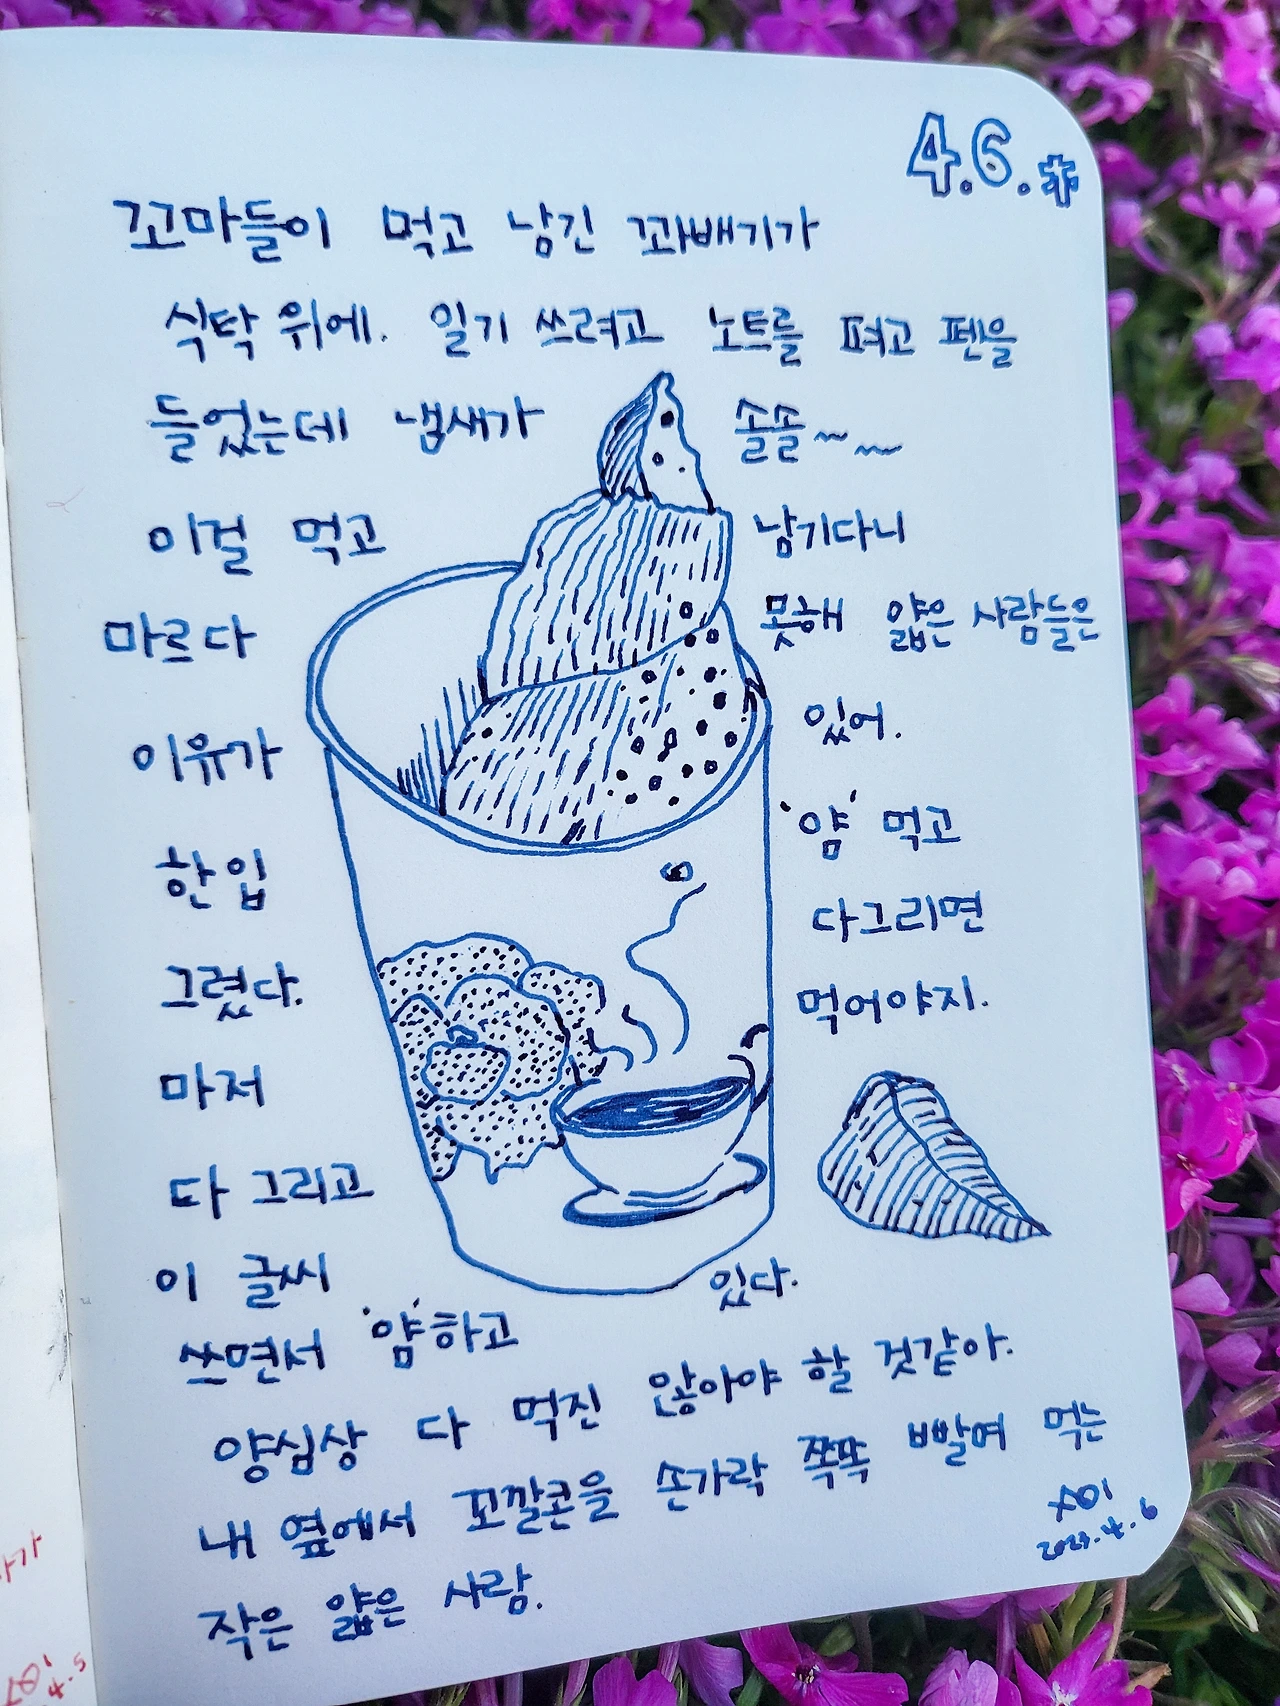 4.6.
꼬마들이 먹고 남긴 꽈배기가
식탁 위에. 일기 쓰려고 노트를 펴고 펜을
들었는데 냄새가 솔솔~~
이걸 먹고 남기다니
마르다 못해 얇은 사람들은
이유가 있어.
한입 '얌' 먹고
그렸다. 다그리면
마저 먹어야지.
다 그리고
이 글씨 있다.
쓰면서 '얌'하고
양심상 다 먹진 않아야 할 것같아.
내 옆에서 꼬깔콘을 손가락 쪽쪽 빨며 먹는
작은 얇은 사람.
2023.4.6
4.5